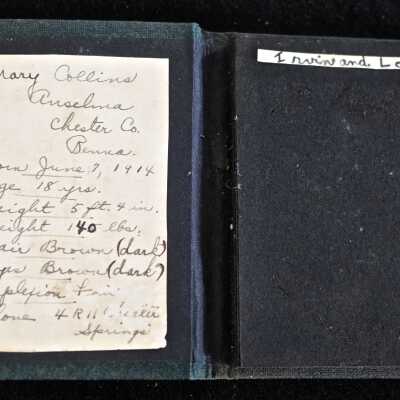 Mary Collins
Anselma
Chester Co.
Penna.
orn June 7, 1914
ge 18 yrs.
eight 5 ft. 4 in.
eight 140 lbs.
air Brown (dark)
yes Brown (dark)
plexion Fair
one 4 R 11
Springs
Irvin and Lo